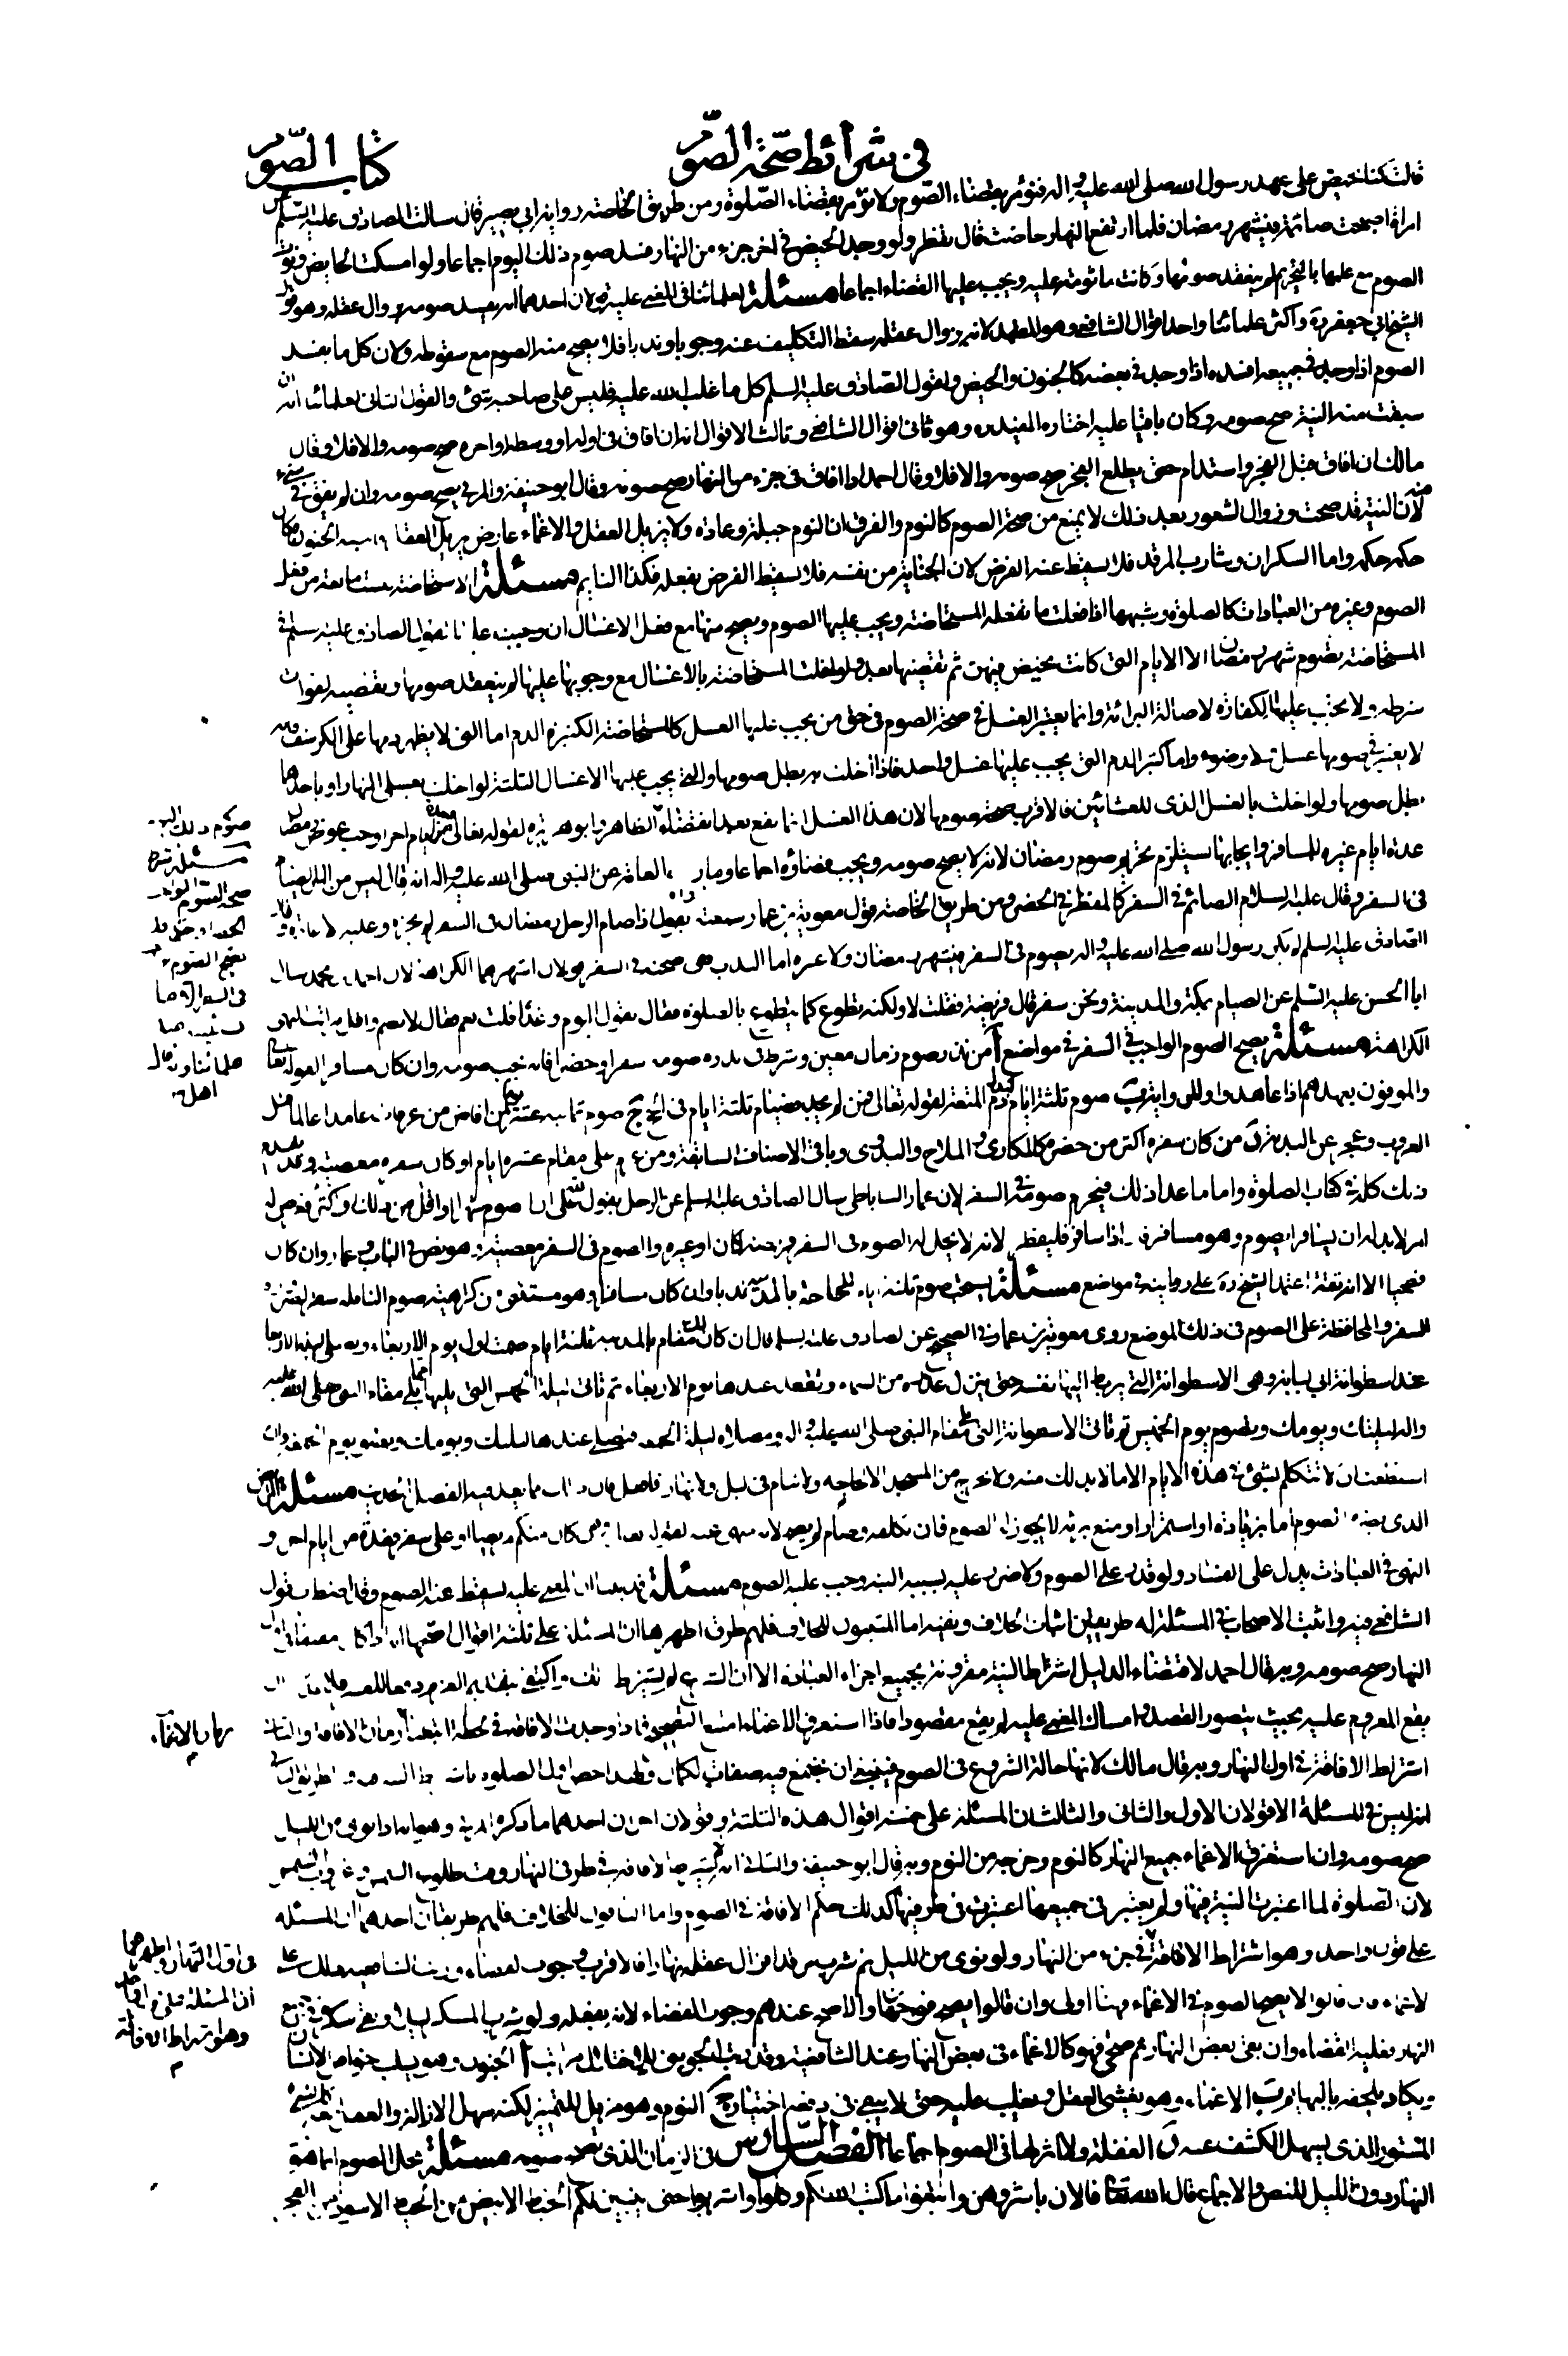 كتاب الصوم
في شرائط صحة الصوم
قالت كنا نحيض على عهد رسول الله صلى الله عليه وآله فنؤمر بقضاء الصوم ولا نؤمر بقضاء الصلوة ومن طريق الخاصة رواية ابي بصير قال سالت الصادق عليه السلم عن
امراة اصبحت صائمة في شهر رمضان فلما ارتفع النهار حاضت قال تفطر ولو وجد الحيض في اخر جزء من النهار فسد صوم ذلك اليوم اجماعا ولو امسكت الحايض ونوت
الصوم مع علمها بالتحريم لم ينعقد صومها وكانت ماثومة عليه ويجب عليها القضاء اجماعا مسئلة لعلمائنا في المغمى عليه قولان احدهما انه يفسد صومه بزوال عقله وهو قول
الشيخ ابي جعفر ره واكثر علمائنا واحد اقوال الشافعي وهو المعتمد لانه بزوال عقله سقط التكليف عنه وجوبا وندبا فلا يصح منه الصوم مع سقوطه ولان كل ما يفسد
الصوم اذا وجد في جميعه افسده اذا وجد في بعضه كالجنون والحيض ولقول الصادق عليه السلم كل ما غلب الله عليه فليس على صاحبه شئ والقول الثاني لعلمائنا انه ان
سبقت منه النية صح صومه وكان باقيا عليه اختاره المفيد ره وهو ثاني اقوال الشافعي وثالث الاقوال انه ان افاق في اوله او وسطه او اخره صح صومه والا فلا وقال
مالك ان افاق قبل الفجر واستدام حتى يطلع الفجر صح صومه والا فلا وقال احمد اذا افاق في جزء من النهار صح صومه وقال ابو حنيفة والمزني يصح صومه وان لم يفق في شئ منه
لان النية قد صحت وزوال الشعور بعد ذلك لا يمنع من صحة الصوم كالنوم والفرق ان النوم جبلة وعادة ولا يزيل العقل والاغماء عارض يزيل العقل فاشبه الجنون فكان
حكمه حكمه واما السكران وشارب المرقد فلا يسقط عنه الفرض لان الجناية من نفسه فلا يسقط الفرض بفعله فكذا النايم مسئلة الاستحاضة ليست مانعة من فعل
الصوم وغيره من العبادات كالصلوة وشبهها اذا فعلت ما تفعله المستحاضة ويجب عليها الصوم ويصح منها مع فعل الاغسال ان وجبت عليها لقول الصادق عليه السلم في
المستحاضة تصوم شهر رمضان الا الايام التي كانت تحيض فيهن ثم تقضيها بعد ولو اخلت المستحاضة بالاغسال مع وجوبها عليها لم ينعقد صومها وتقضيه لفوات
شرطه ولا يجب عليها الكفارة لاصالة البرائة وانما يعتبر الغسل في صحة الصوم في حق من يجب عليها الغسل كالمستحاضة الكثيرة الدم اما التي لا يظهر دمها على الكرسف فانه
لا يعتبر في صومها غسل ولا وضوء واما كثير الدم التي يجب عليها غسل واحد فاذا اخلت به بطل صومها والتي يجب عليها الاغسال الثلثة لو اخلت بغسلي النهار او باحدهما
بطل صومها ولو اخلت بالغسل الذي للعشائين فالاقرب صحة صومها لان هذا الغسل انما يقع بعد انقضاء
عدة ايام غيره للمسافر وايجابها يستلزم تحريم صوم رمضان لانه لا يصح صومه ويجب قضاؤه اجماعا وما رواه العامة عن النبي صلى الله عليه واله انه قال ليس من البر الصيام
في السفر وقال عليه السلام الصائم في السفر كالمفطر في الحضر ومن طريق الخاصة قول معوية بن عمار سمعته يقول اذا صام الرجل رمضان في السفر لم يجزه وعليه الاعادة وقال
الصادق عليه السلم لم يكن رسول الله صلى الله عليه واله يصوم في السفر في شهر رمضان ولا غيره اما الندب ففي صحته في السفر قولان اشهرهما الكراهة لان احمد بن محمد سال
ابا الحسن عليه السلم عن الصيام بمكة والمدينة ونحن سفر قال فريضة فقلت لا ولكنه تطوع كما يتطوع بالصلوة فقال تقول اليوم وغدا قلت نعم فقال لا تصم واقل مراتب النهي
الكراهة مسئلة يصح الصوم الواجب في السفر في مواضع ا من نذر صوم زمان معين وشرط في نذره صومه سفرا وحضرا فانه يجب صومه وان كان مسافرا لقوله تعالى
والموفون بعهدهم اذا عاهدوا ب صوم ثلثة ايام لبدل دم المتعة لقوله تعالى فمن لم يجد فصيام ثلثة ايام في الحج ج صوم ثمانية عشر لمن افاض من عرفات عامدا عالما قبل
الغروب وعجز عن البدنة د من كان سفره اكثر من حضره كالمكاري والملاح والبدوي وباقي الاصناف السابقة ومن عزم على مقام عشرة ايام او كان سفره معصية وقد تقدم
ذلك كله في كتاب الصلوة واما ما عدا ذلك فيحرم صومه في السفر لان عمار الساباطي سال الصادق عليه السلم عن الرجل يقول لله علي ان اصوم شهرا او اقل من ذلك او اكثر فعرض له
امر لا بد له ان يسافر ايصوم وهو مسافر قال اذا سافر فليفطر لانه لا يحل له الصوم في السفر فريضة كان او غيره والصوم في السفر معصية وهو نص في الباب وعمار وان كان
فطحيا الا انه ثقة اعتمد الشيخ ره على روايته في مواضع مسئلة يستحب صوم ثلثة ايام للحاجة بالمدينة ندبا وان كان مسافرا وهو مستثنى من كراهية صوم النافلة سفرا
والمحافظة على الصوم في ذلك الموضع روى معوية بن عمار في الصحيح عن الصادق عليه السلم قال ان كان لك مقام بالمدينة ثلثة ايام صمت اول يوم الاربعاء وتصلي ليلة الاربعا
عند اسطوانة ابي لبابة وهي الاسطوانة التي ربط اليها نفسه حتى ينزل عذره من السماء وتقعد عندها يوم الاربعاء ثم تاتي ليلة الخميس التي يليها مما يلي مقام النبي صلى الله عليه
واله ليلتك ويومك وتصوم يوم الخميس ثم تاتي الاسطوانة التي تلي مقام النبي صلى الله عليه واله ومصلاه ليلة الجمعة فتصلي عندها ليلتك ويومك وتصوم يوم الجمعة وان
استطعت ان لا تتكلم بشئ في هذه الايام الا ما لا بد لك منه ولا تخرج من المسجد الا لحاجة ولا تنام في ليل ولا نهار فافعل فان ذلك مما يعد فيه الفضل الحديث مسئلة المرض
الذي يضره الصوم اما بزيادته او استمراره او منع برئه لا يجوز له الصوم فان تكلفه وصام لم يصح لانه منهي عنه لقوله تعالى فمن كان منكم مريضا او على سفر فعدة من ايام اخر و
النهي في العبادات يدل على الفساد ولو قدر على الصوم ولا ضرر عليه بسببه البتة وجب عليه الصوم مسئلة قد بينا ان المغمى عليه يسقط عنه الصوم وقد اضطرب قول
الشافعي فيه واثبت الاصحاب في المسئلة له طريقين اثبات الخلاف ونفيه اما المثبتون للخلاف فلهم طرق اظهرها ان المسئلة على ثلثة اقوال اصحها انه اذا كان مفيقا في اول
النهار صح صومه وبه قال احمد لاقتضاء الدليل اشتراط النية مقرونة بجميع اجزاء العبادة الا ان الشرع لم يشترط ذلك واكتفى بتقديم العزم دفعا للعسر فلا بد ان
يقع المعزوم عليه بحيث يتصور القصد وامساك المغمى عليه لم يقع مقصودا فاذا استغرق الاغماء امتنع التصحيح فاذا وجدت الافاقة في لحظة اتبعنا زمان الافاقة والثاني
اشتراط الافاقة في اول النهار وبه قال مالك لانها حالة الشروع في الصوم فينبغي ان تجتمع فيه صفات الكمال
انه ليس في المسئلة الا قولان الاول والثاني والثالث ان المسئلة على خمسة اقوال هذه الثلثة وقولان اخران احدهما ما ذكره المزني وهو انه اذا نوى من الليل
صح صومه وان استغرق الاغماء جميع النهار كالنوم وخرجه من النوم وبه قال ابو حنيفة والثاني انه يشترط الافاقة في طرفي النهار وقت طلوع الشمس وغروب الشمس
لان الصلوة لما اعتبرت النية فيها ولم يعتبر في جميعها اعتبرت في طرفيها كذلك حكم الافاقة في الصوم واما النافون للخلاف فلهم طريقان احدهما ان المسئلة
على قول واحد وهو اشتراط الافاقة في جزء من النهار ولو نوى من الليل ثم شرب مرقدا فزال عقله نهارا فالاقرب وجوب القضاء
وان قالوا لا يصح الصوم في الاغماء فهنا اولى وان قالوا يصح فوجهان والاصح عندهم وجوب القضاء لانه بفعله ولو شرب المسكر ليلا وبقي سكره في جميع
النهار فعليه القضاء وان بقي بعض النهار ثم صحى فهو كالاغماء في بعض النهار عند الشافعية
ويكاد يلحقه بالبهايم ب الاغماء وهو يغشى العقل ويغلب عليه حتى لا يبقى في دفعه اختيار ج النوم وهو مزيل للتميز لكنه سهل الازالة والعقل معه كالشئ
المستور الذي يسهل الكشف عنه د الغفلة ولا اثر لها في الصوم اجماعا الفصل السادس في الزمان الذي يصح صومه مسئلة محل الصوم انما هو
النهار دون الليل للنص والاجماع قال الله تعالى فالان باشروهن وابتغوا ما كتب الله لكم وكلوا واشربوا حتى يتبين لكم الخيط الابيض من الخيط الاسود من الفجر
صوم ذلك اليوم
مسئلة شرط
صحة الصوم الواجب
علمائنا وبه قال
اهل
زمان الاغماء
في اول النهار واظهرهما
ان المسئلة على قول واحد
وهو اشتراط الافاقة